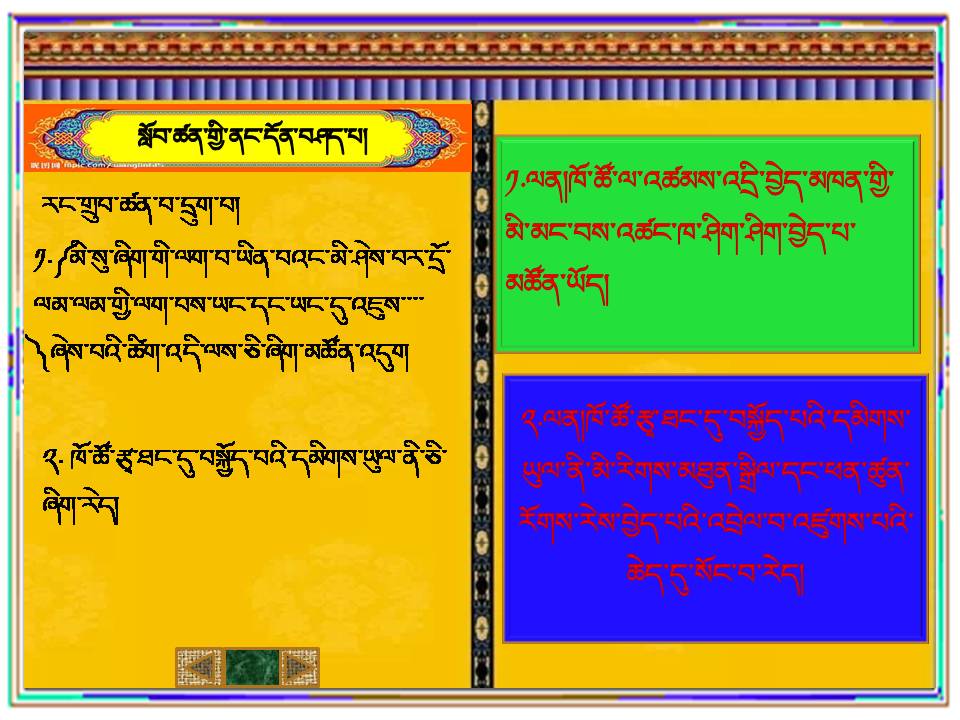 སློབ་ཚན་གྱི་ནང་དོན་བཤད་པ།
རང་གྲུབ་ཚན་བ་དྲུག་བ།
༡.༼མི་སུ་ཞིག་གི་ལག་བ་ཡིན་བའང་མི་ཤེས་བར་དྲོ་
ལམ་ལམ་གྱི་ལག་བས་ཡང་དང་ཡང་དུ་འཇུས་་་་
༽ཞེས་བའི་ཚིག་འདི་ལས་ཅི་ཞིག་མཚོན་འདུག
༢. ཁོ་ཚོ་རྩྭ་ཐང་དུ་བསྐྱོད་བའི་དམིགས་ཡུལ་ནི་ཅི་
ཞིག་རེད།
༡.ལན།ཁོ་ཚོ་ལ་འཚམས་འདྲི་བྱེད་མཁན་གྱི་
མི་མང་བས་འཚང་ཁ་ཤིག་ཤིག་བྱེད་པ་
མཚོན་ཡོད།
༢.ལན།ཁོ་ཚོ་རྩྭ་ཐང་དུ་བསྐྱོད་པའི་དམིགས་
ཡུལ་ནི་མི་རིགས་མཐུན་སྒྲིལ་དང་ཕན་ཚུན་
རོགས་རེས་བྱེད་པའི་འབྲེལ་བ་འཛུགས་པའི་
ཆེད་དུ་སོང་བ་རེད།